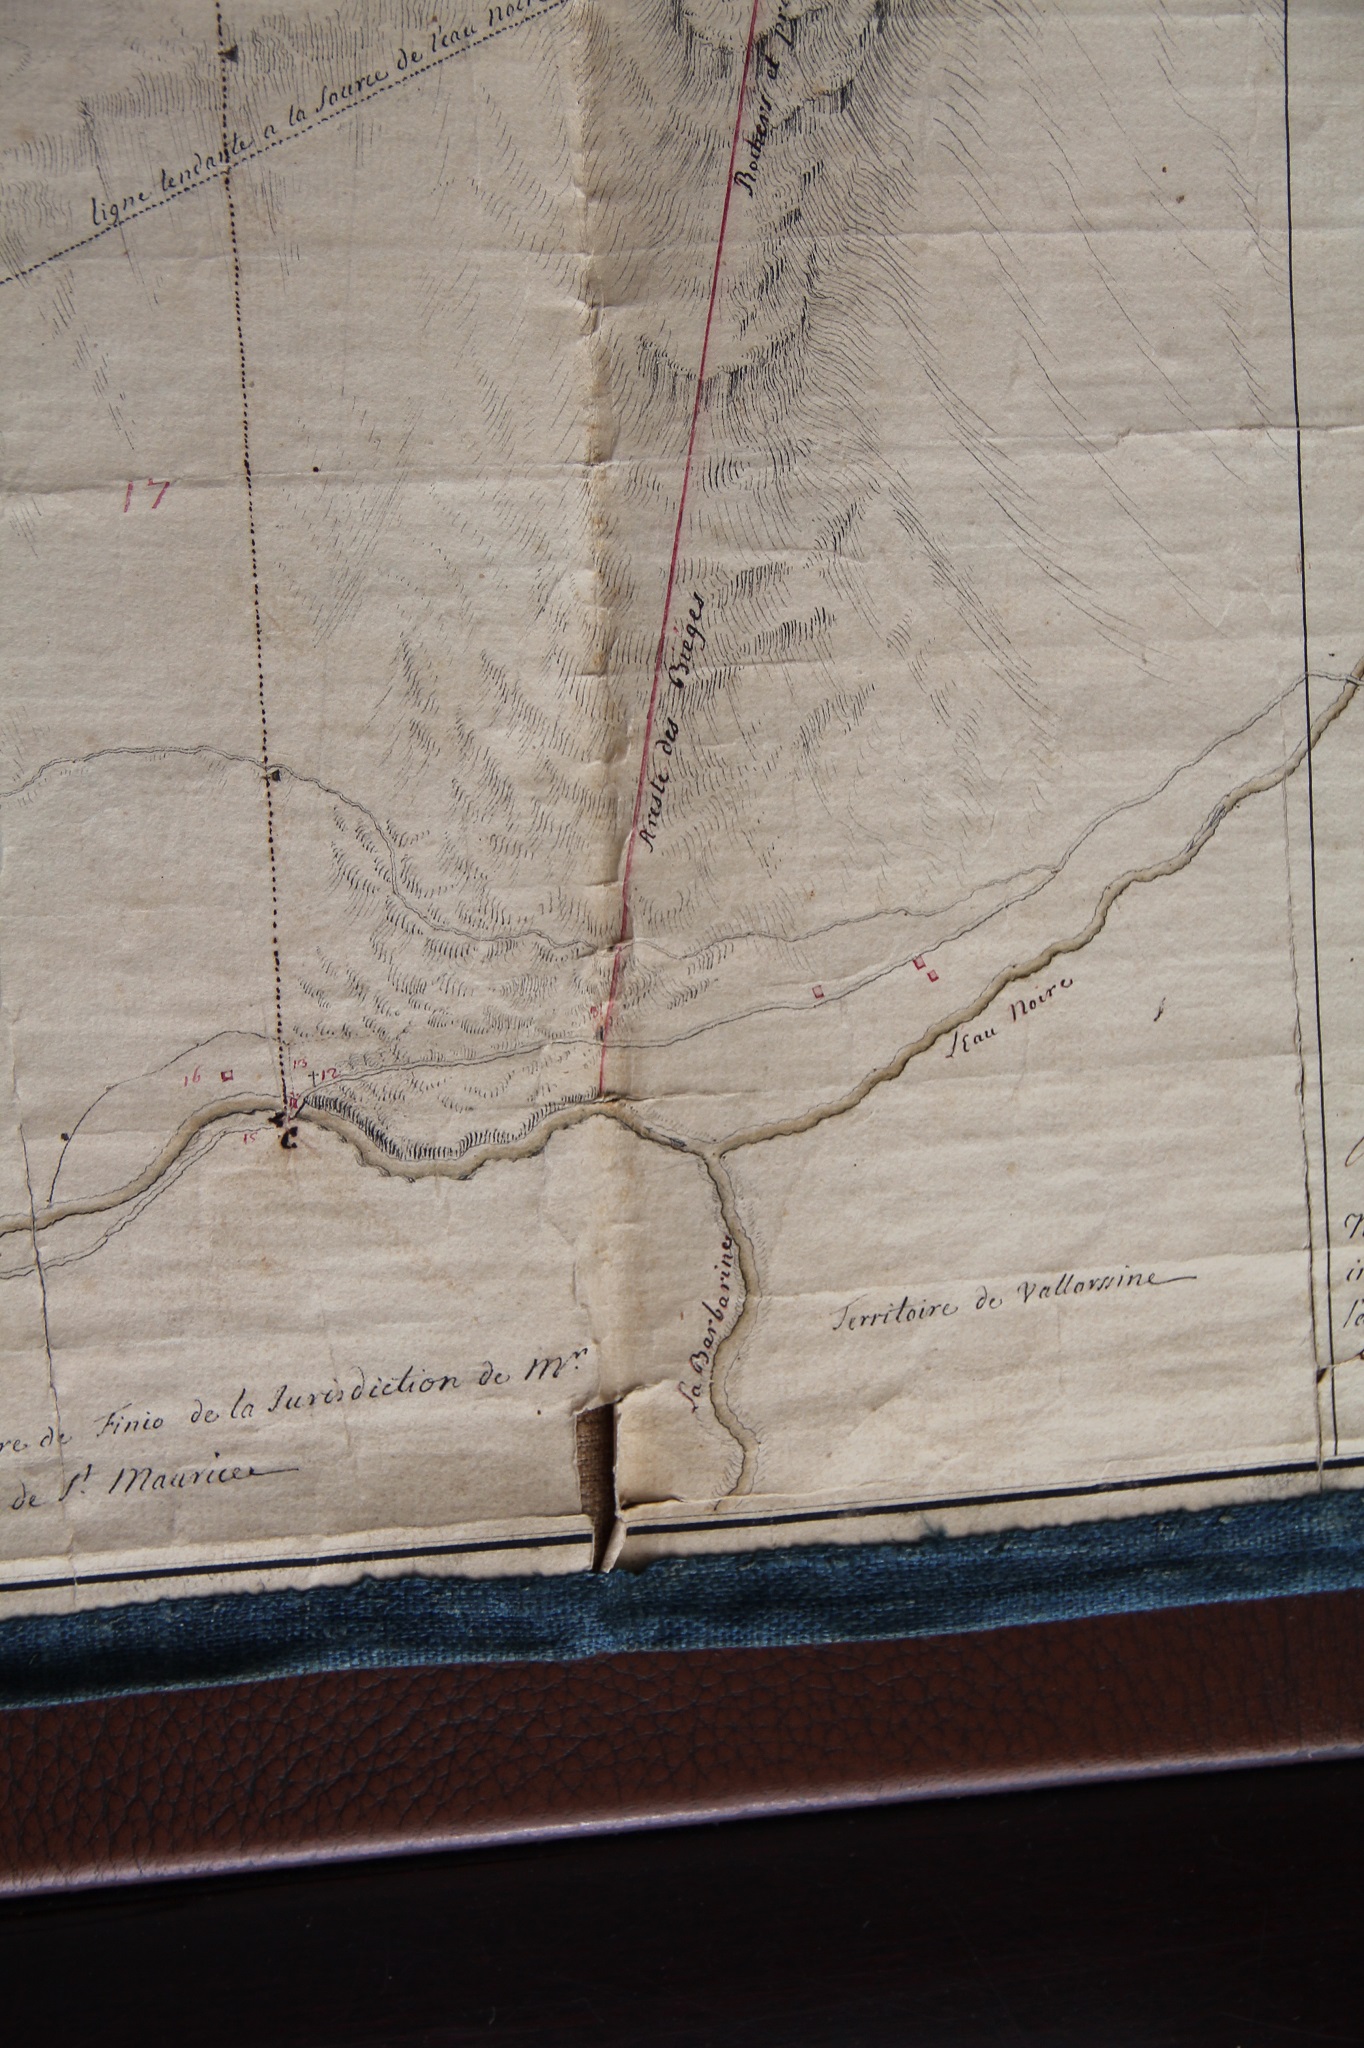 ligne tendante a la source de l'eau noire
Rochers et
17
Areste des Bieges
L'Eau Noire
13
12
16
15
C
La Barbarine
Territoire de Vallorsine
re de Finio de la Jurisdiction de Mr
de St. Maurice